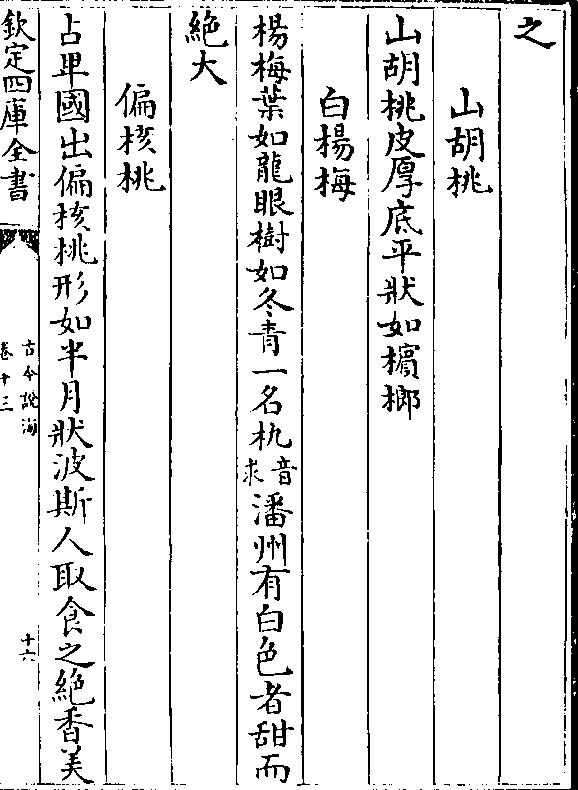 之
山胡桃
山胡桃皮厚底平狀如檳榔
白楊梅
楊梅葉如龍眼樹如冬青一名朹音求潘州有白色者甜而
絕大
偏核桃
占卑國出偏核桃形如半月狀波斯人取食之絕香美
欽定四庫全書
古今說海
卷十三
十六